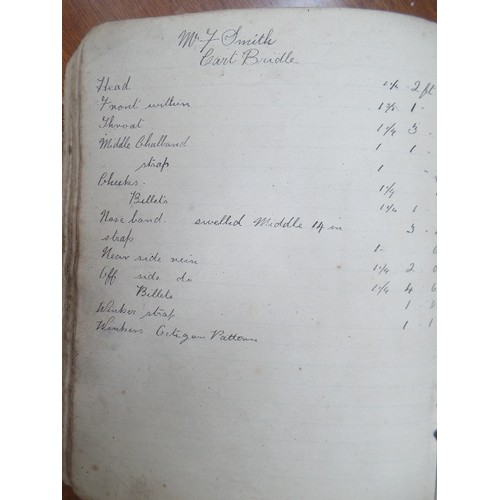 Mr F Smith
Cart Bridle
Head 1½ 2 ft
Front within 1⅜ 1 -
Throat 1¼ 3 -
Middle Chalband 1 1 -
strap 1 -
Cheeks. 1¼ 1
Billets 1¼ 1
Nose band. swelled Middle 14 in 3 -
strap 1 -
Near side rein 1¼ 2
Off side do 1¼ 4
Billets
Winker strap 1
Winkers Octagon Pattern 1 1